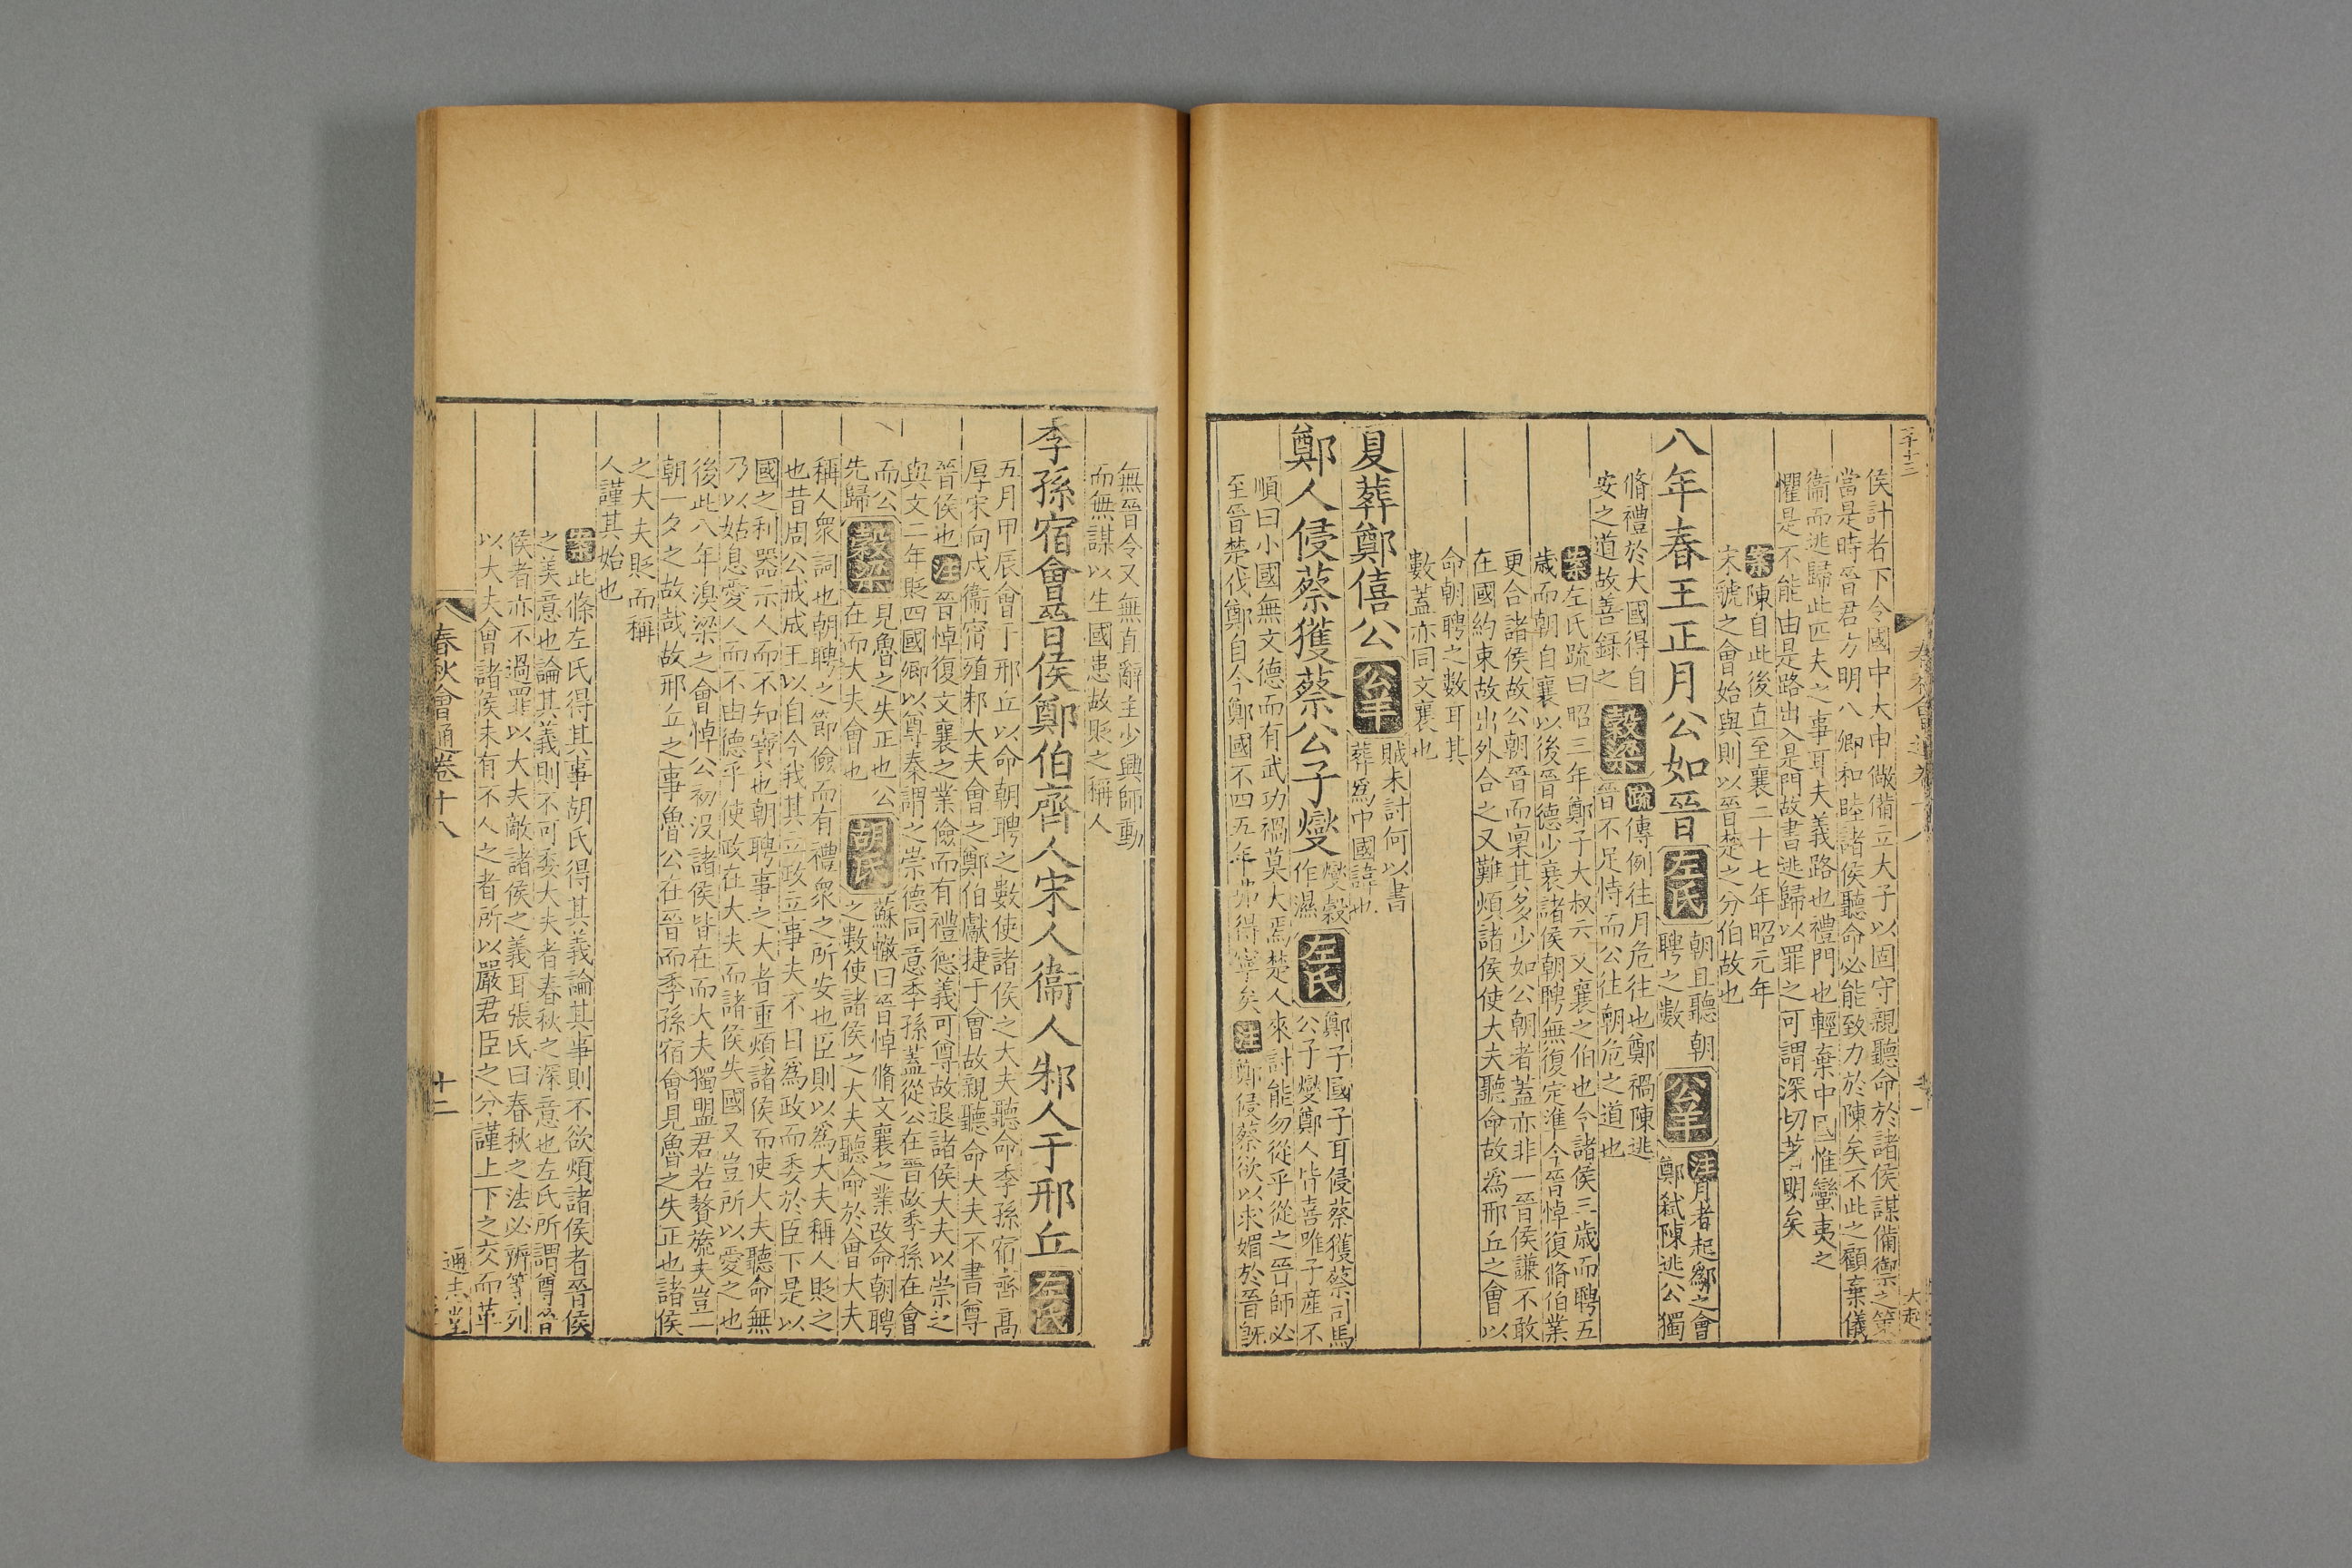 侯計者下令國中大申儆備立大子以固守親聽命於諸侯謀備禦之策
當是時晉君方明八卿和睦諸侯聽命必能致力於陳矣不此之顧棄儀
衛而逃歸此匹夫之事耳夫義路也禮門也輕棄中國惟蠻夷之
懼是不能由是路出入是門故書逃歸以罪之可謂深切著明矣
案陳自此後直至襄二十七年昭元年
宋虢之會始與則以晉楚之分伯故也
八年春王正月公如晉 左氏 朝且聽朝
聘之數 公羊 注月者起鄬之會
鄭弑陳逃公獨
脩禮於大國得自
安之道故善録之 穀梁 疏傳例往月危往也鄭禍陳逃
晉不足恃而公往朝危之道也
案左氏疏曰昭三年鄭子大叔云文襄之伯也令諸侯三歲而聘五
歲而朝自襄以後晉德少衰諸侯朝聘無復定準今晉悼復脩伯業
更合諸侯故公朝晉而稟其多少如公朝者蓋亦非一晉侯謙不敢
在國約束故出外合之又難煩諸侯使大夫聽命故爲邢丘之會以
命朝聘之數耳其
數蓋亦同文襄也
夏葬鄭僖公 公羊 賊未討何以書
葬爲中國諱也
鄭人侵蔡獲蔡公子燮 燮穀
作濕 左氏 鄭子國子耳侵蔡獲蔡司馬
公子燮鄭人皆喜唯子產不
順曰小國無文德而有武功禍莫大焉楚人來討能勿從乎從之晉師必
至晉楚伐鄭自今鄭國不四五年弗得寧矣 注鄭侵蔡欲以求媚於晉旣
無晉令又無直辭主少興師動
而無謀以生國患故貶之稱人
季孫宿會晉侯鄭伯齊人宋人衞人邾人于邢丘 左氏
五月甲辰會于邢丘以命朝聘之數使諸侯之大夫聽命季孫宿齊髙
厚宋向戌衞甯殖邾大夫會之鄭伯獻捷于會故親聽命大夫不書尊
晉侯也 注晉悼復文襄之業儉而有禮德義可尊故退諸侯大夫以崇之
與文二年貶四國卿以尊秦謂之崇德同意季孫蓋從公在晉故季孫在會
而公
先歸 穀梁 見魯之失正也公
在而大夫會也 胡氏 蘇轍曰晉悼脩文襄之業改命朝聘
之數使諸侯之大夫聽命於會大夫
稱人衆詞也朝聘之節儉而有禮衆之所安也臣則以爲大夫稱人貶之
也昔周公戒成王以自今我其立政立事夫不曰爲政而委於臣下是以
國之利器示人而不知寳也朝聘事之大者重煩諸侯而使大夫聽命無
乃以姑息愛人而不由德乎使政在大夫而諸侯失國又豈所以愛之也
後此八年溴梁之會悼公初没諸侯皆在而大夫獨盟君若贅旒夫豈一
朝一夕之故哉故邢丘之事魯公在晉而季孫宿會見魯之失正也諸侯
之大夫貶而稱
人謹其始也
案此條左氏得其事胡氏得其義論其事則不欲煩諸侯者晉侯
之美意也論其義則不可委大夫者春秋之深意也左氏所謂尊晉
侯者亦不過罪以大夫敵諸侯之義耳張氏曰春秋之法必辨等列
以大夫會諸侯未有不人之者所以嚴君臣之分謹上下之交而革
春秋會通卷十八 十二 通志堂